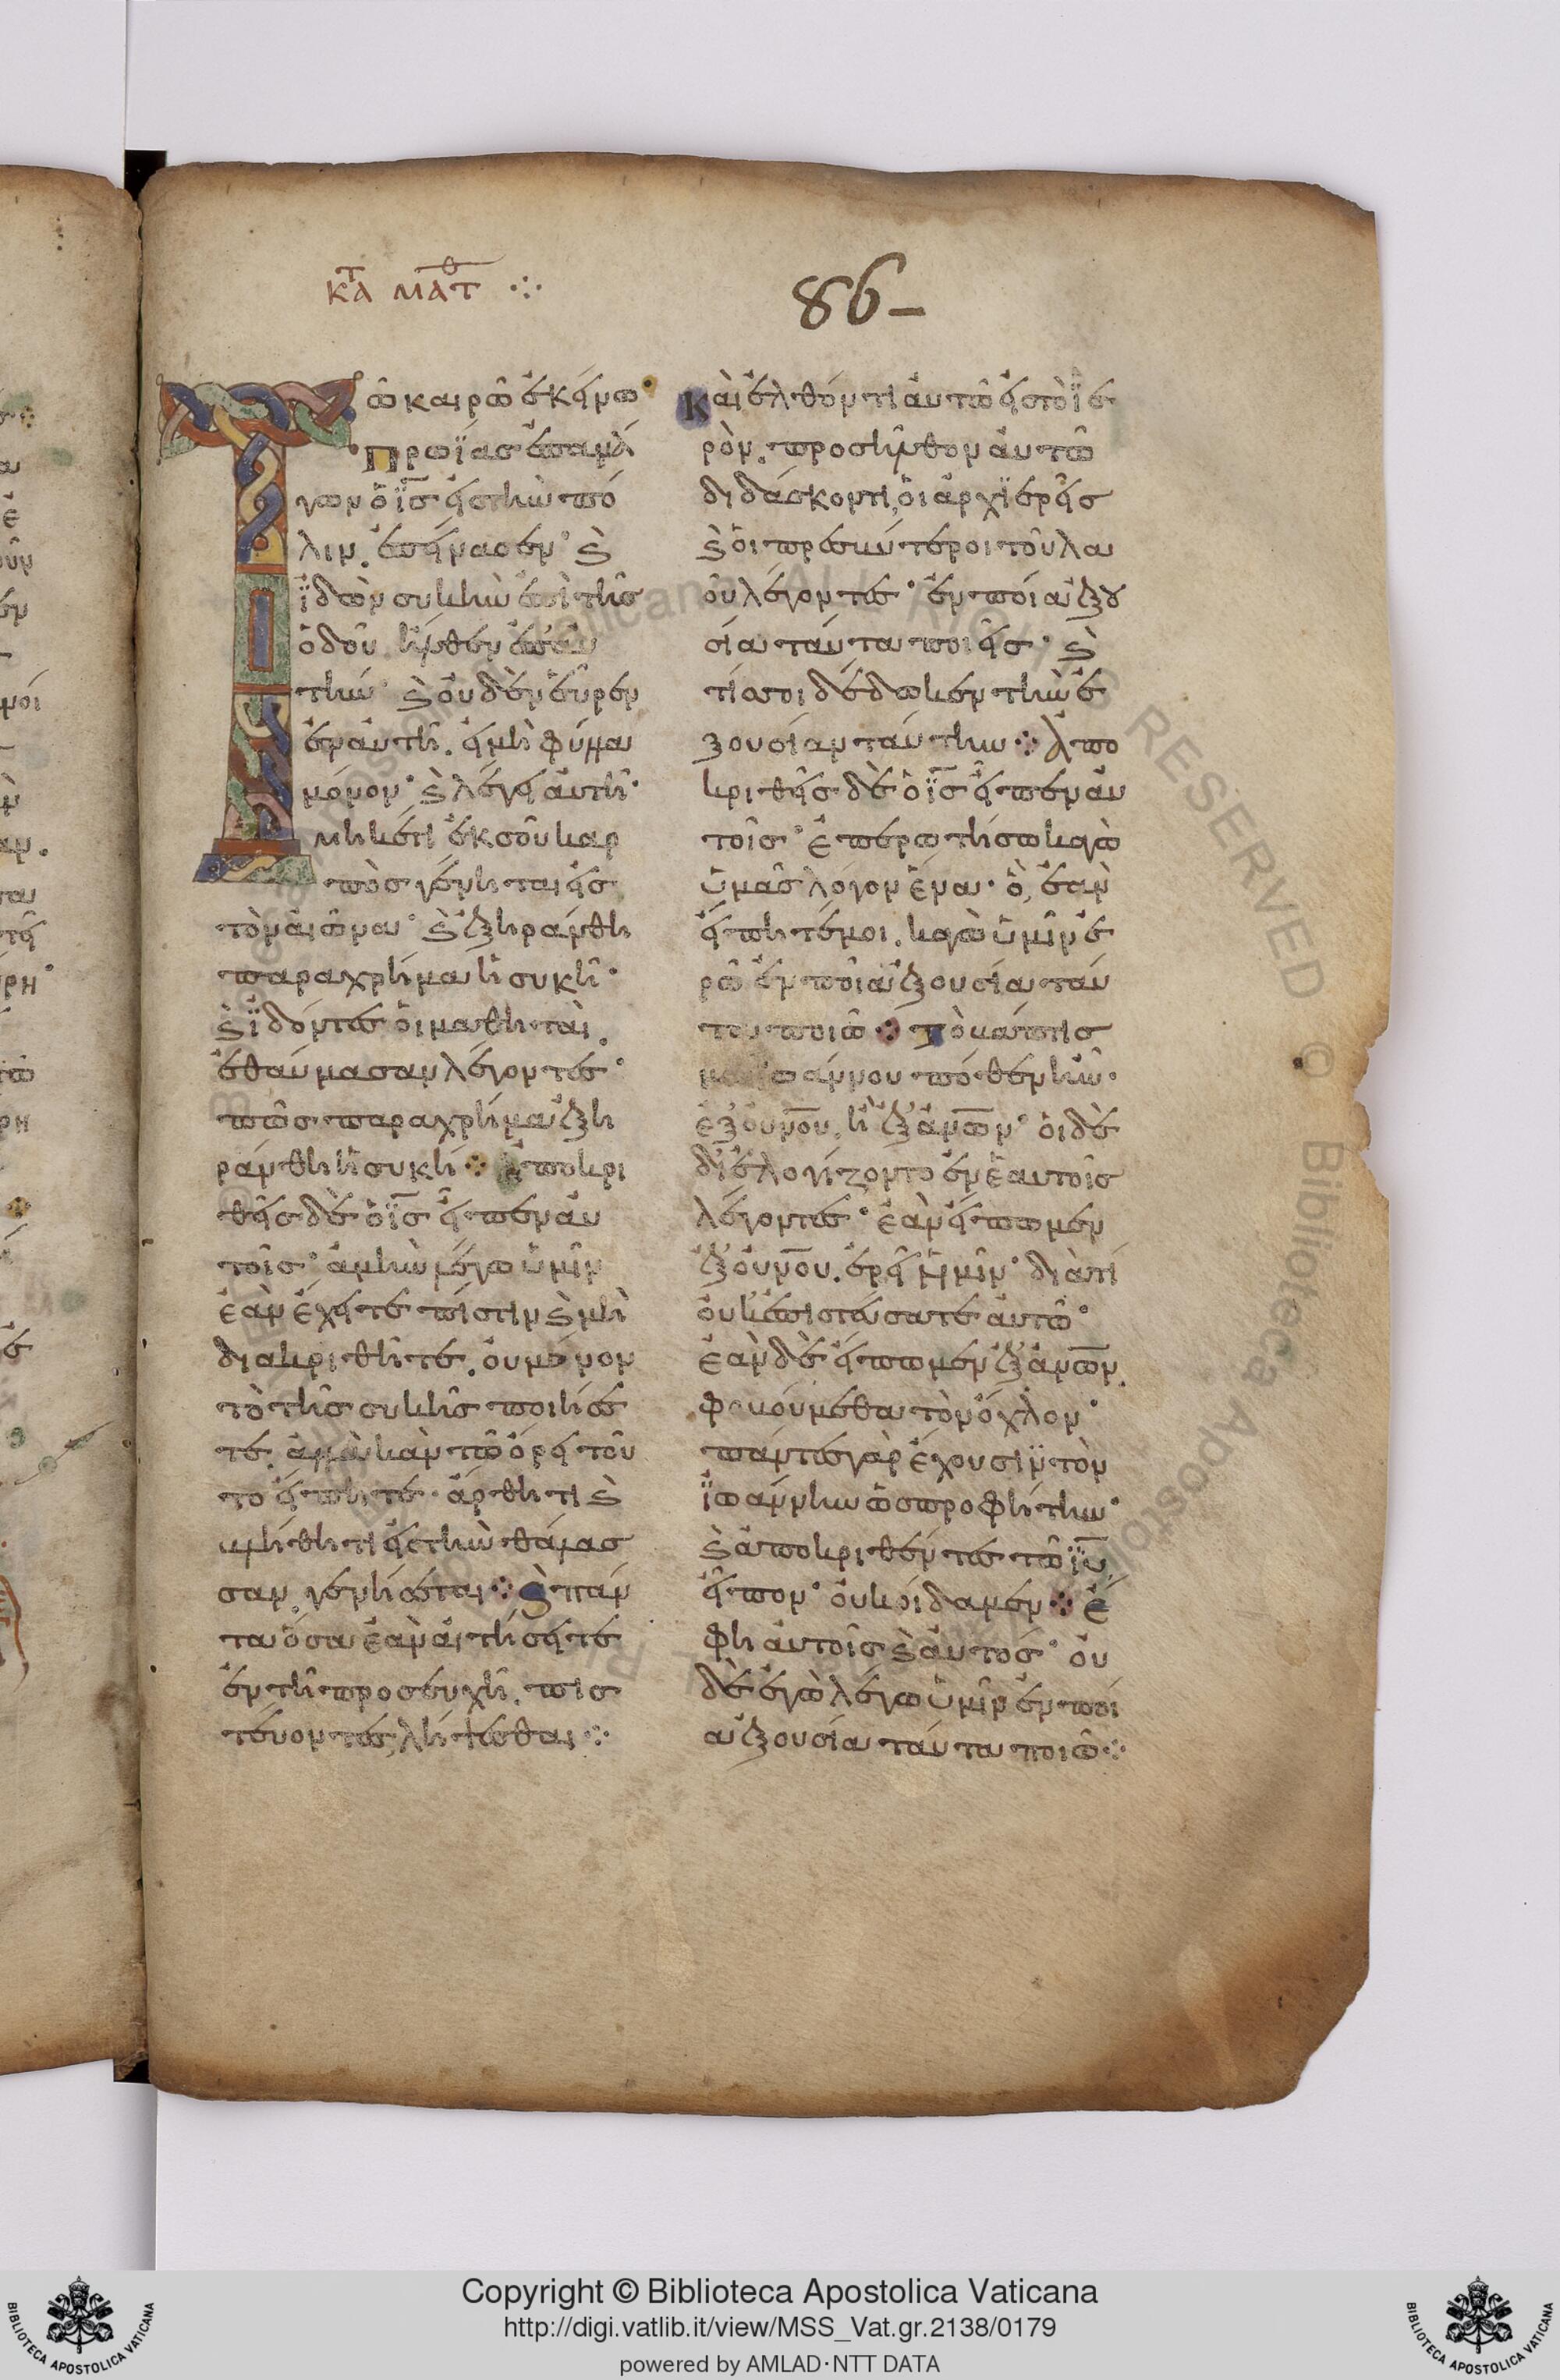 κτα ματθ ⁘
86-
Τῶ καιρῶ ἐκείνω·
Πρωΐας ἐπανά
γων ὁ ϊς εἰς τὴν πό
λιν, ἐπείνασεν· κ̀
ϊδὼν συκὴν ἐπὶ τῆς
ὁδοῦ ἦλθεν ἐπ' αὐ
τήν· κ̀ οὐδὲν εὗρεν
ἐν αὐτῆ. εἰ μὴ φύλλα
μόνον· κ̀ λέγει αὐτῆ·
Μηκέτι ἐκ σοῦ καρ
πὸς γένηται εἰς
τὸν αἰῶνα· κ̀ ἐξηράνθη
παραχρῆμα ἡ συκῆ·
κ̀ ϊδόντες οἱ μαθηταὶ.
ἐθαύμασαν λέγοντες·
πῶς παραχρῆμα ἐξη
ράνθη ἡ συκῆ ⁘ ἀποκρι
θεὶς δὲ ὁ ϊς εἶπεν αὐ
τοῖς· ἀμὴν λέγω ὑμῖν
ἐὰν ἔχητε πίστιν κ̀ μὴ
διακριθῆτε. οὐ μόνον
τὸ τῆς συκῆς ποιήσε
τε. ἀλλὰ κἂν τῶ ὄρει τού
τω εἴπητε· ἄρθητι κ̀
βλήθητι εἰς τὴν θάλασ
σαν. γενήσεται ⁘ κ̀ πάν
τα ὅσα ἐὰν αἰτήσητε
ἐν τῆ προσευχῆ. πισ
τεύοντες, λήψεσθαι ⁘
Καὶ ἐλθόντι αὐτῶ εἰς τὸ ϊε
ρὸν. προσῆλθον αὐτῶ
διδάσκοντι, οἱ ἀρχϊερεῖς
κ̀ οἱ πρεσβύτεροι τοῦ λα
οῦ λέγοντες· ἐν ποία ἐξου
σία ταῦτα ποιεῖς· κ̀
τίς σοι δέδωκεν τὴν ἐ
ξουσίαν ταύτην ⁘ Ἀπο
κριθεὶς δὲ ὁ ϊς εἶπεν αὐ
τοῖς· ἐπερωτήσω κἀγὼ
ὑμᾶς λόγον ἕνα· ὃ, ἐὰν
εἴπητέ μοι. κἀγὼ ὑμῖν ἐ
ρῶ ἐν ποία ἐξουσία ταῦ
τα ποιῶ ⁘ Τὸ βάπτισ
μα ϊωάννου πόθεν ἦν·
ἐξ οὐνου, ἢ ἐξ ἀνων· οἱ δὲ
διελογίζοντο ἐν ἑαυτοῖς
λέγοντες· ἐὰν εἴπωμεν
ἐξ οὐνου. ἐρεῖ ἡμῖν· διατί
οὐκ ἐπιστεύσατε αὐτῶ·
ἐὰν δὲ εἴπωμεν ἐξ ἀνων.
φοβούμεθα τὸν ὄχλον·
πάντες γὰρ ἔχουσϊν τὸν
ϊωάννην ὡς προφήτην·
κ̀ ἀποκριθέντες τῶ ϊυ,
εἶπον· οὐκ οἴδαμεν ⁘ ἔ
φη αὐτοῖς κ̀ αὐτος· οὐ
δὲ ἐγὼ λέγω ὑμῖν ἐν ποί
α ἐξουσία ταῦτα ποιῶ ⁘
Copyright © Biblioteca Apostolica Vaticana
http://digi.vatlib.it/view/MSS_Vat.gr.2138/0179
powered by AMLAD·NTT DATA